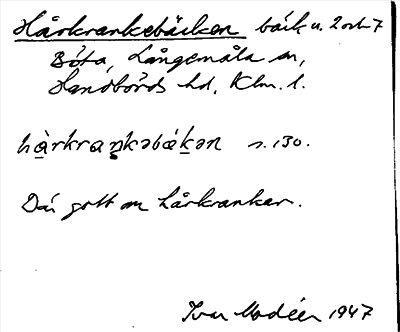 Hårkrankebäcken bäck u. 2 och 7
Böta, Långemåla sn,
Handbörds hd, Klm. l.
hàrkraŋkəbäkən s. 130.
Där gott om hårkrankar.
Ivar Modéer 1947